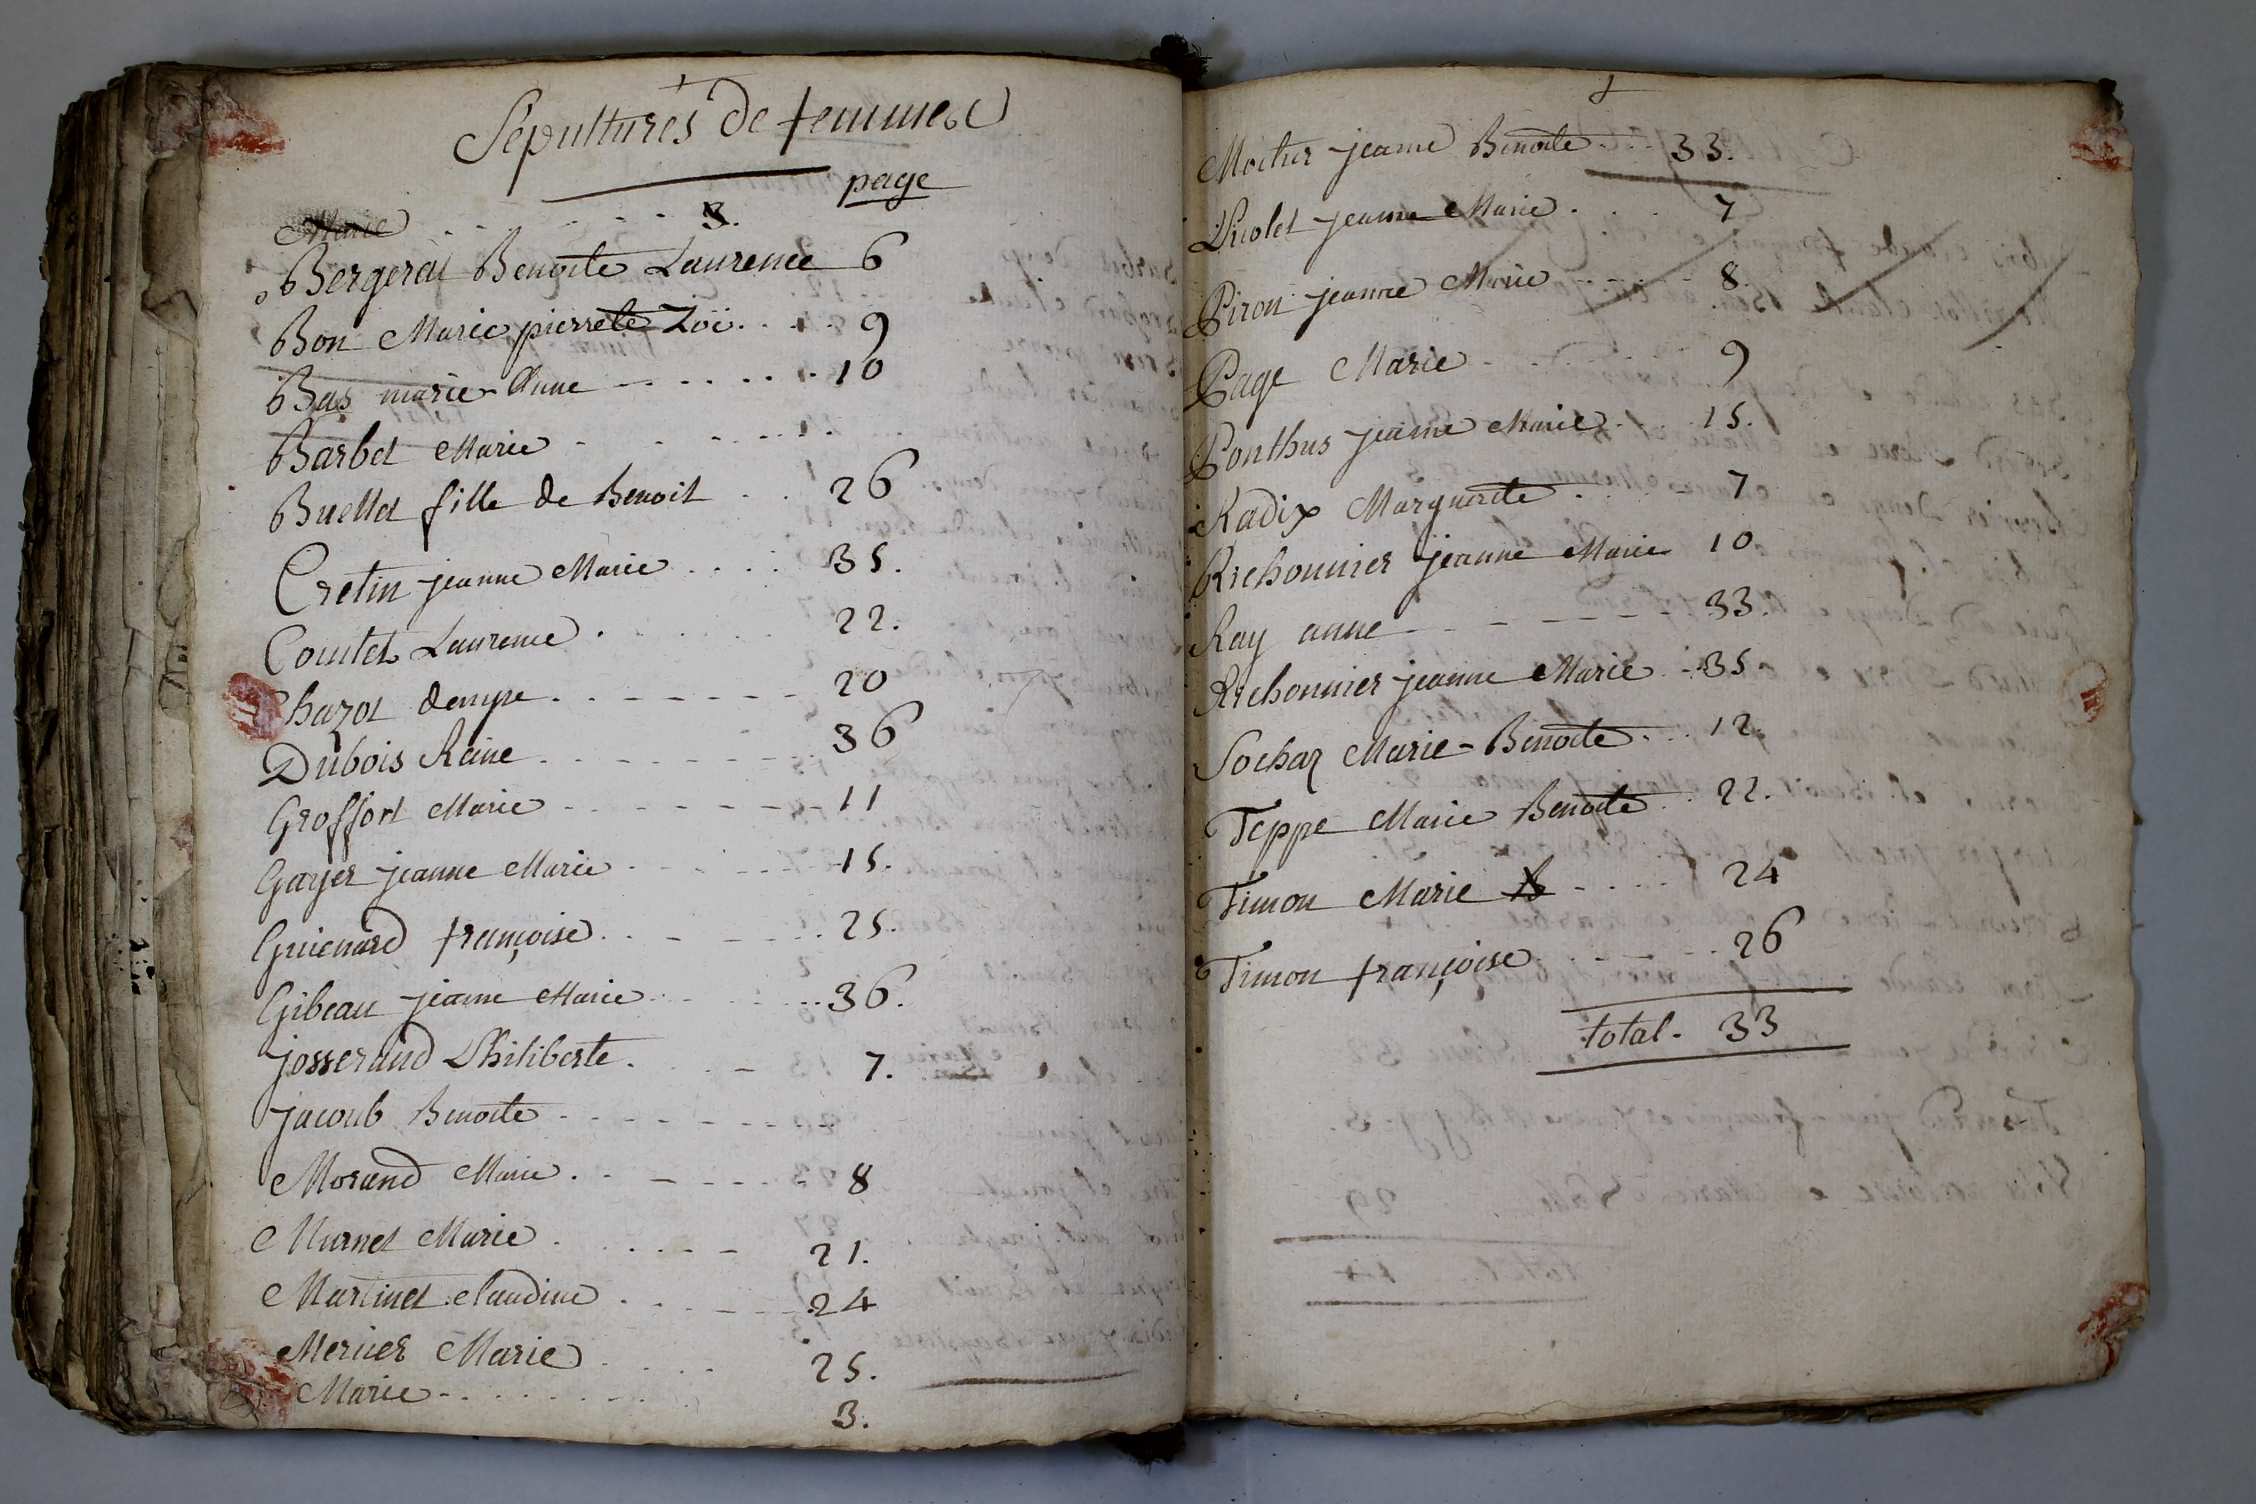 Sépultures de femmes
page
Marie . . . . . . . 3.
Bergerat Benoite Laurence 6
Bon Marie pierrete Zoï . . . . 9
Bas marie-Anne . . . . . . 10
Barbet Marie . . . . . . .
Buellet fille de Benoit . . 26
Cretin jeanne Marie . . . . 35.
Comtet Laurence . . . . . 22.
Chazot denyse . . . . . . 20
Dubois Reine . . . . . . 36
Groffort Marie . . . . . . 11
Gayer jeanne Marie . . . . . 15.
Guienard françoise . . . . . 25.
Gibeau jeanne Marie . . . . . 36.
josserand Philiberte . . . . 7.
jacoub Benoite . . . . . .
Morand Marie . . . . . . 8
Murnet Marie . . . . . 21.
Martinet claudine . . . . . 24
Mercier Marie . . . . 25.
Marie . . . . . . . . 3.
Moitur jeanne Benoite . . . 33.
Priolet jeanne Marie . . . . 7
Piron jeanne Marie . . . . . 8.
Page Marie . . . . . . 9
Ponthus jeanne Marie . . . 15.
Radix Marguerite . . . . . 7
Richonnier jeanne Marie 10
Ray anne . . . . . . . 33.
Richonnier jeanne Marie . . 35
Sochaz Marie-Benoite . . . 12.
Teppe Marie Benoite . . 22.
Timon Marie . . . . . 24
Timon françoise . . . . . 26
total. 33